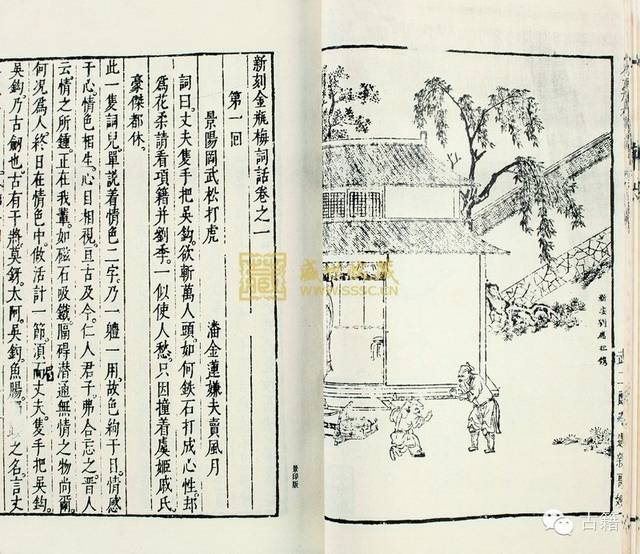 新安劉應祖鐫
新刻金瓶梅詞話卷之一
第一回
景陽岡武松打虎　潘金蓮嫌夫賣風月
詞曰。丈夫隻手把吳鈎。欲斬萬人頭。如何鉄石打成心性。却
為花柔。請看項籍并劉季。一似使人愁。只因撞着虞姬戚氏。
豪傑都休。
此一隻詞兒。單說着情色二字。乃一體一用。故色絢于目。情感
于心。情色相生。心目相視。亘古及今。仁人君子。弗合忘之。晉人
云。情之所鍾。正在我輩。如磁石吸鐵。隔碍潛通。無情之物尚爾。
何况為人。終日在情色中。做活計一節。須丈夫。隻手把吳鈎。
吳鈎乃古劍也。古有干將莫鋣。太阿。吳鈎。魚腸之名。言丈
景印版
盛世收藏
WWW.SSSC.CN
古籍